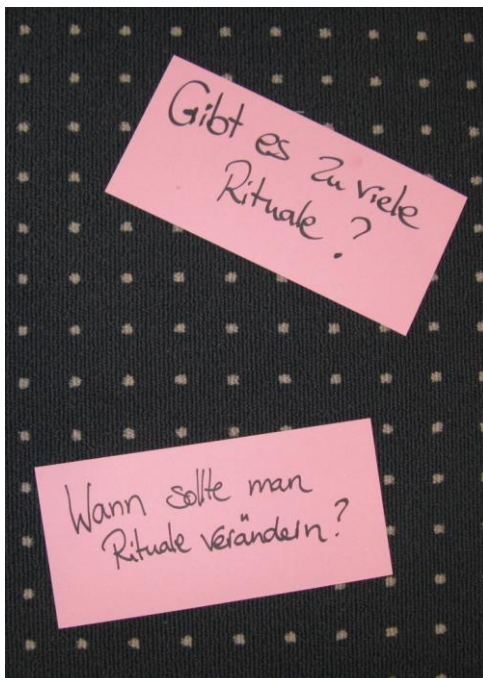 Gibt es zu viele
Rituale?
Wann sollte man
Rituale verändern?